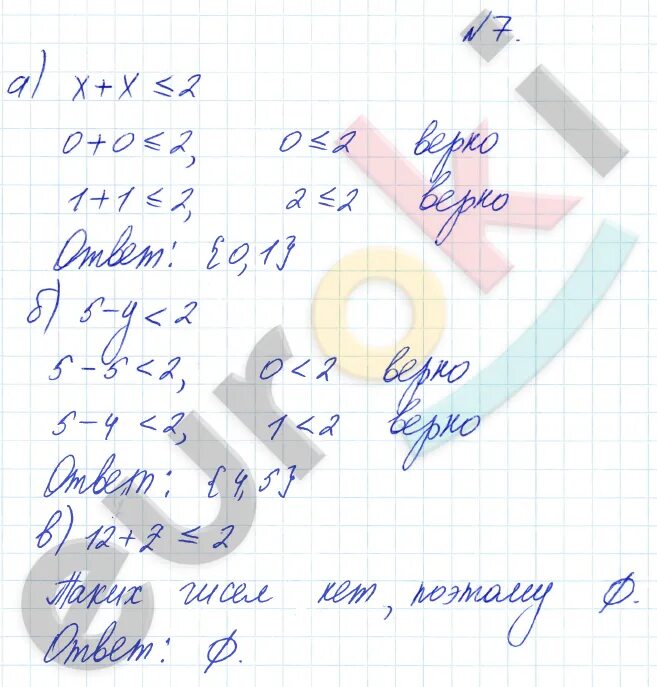 №7.
а) x+x ≤ 2
0+0 ≤ 2, 0 ≤ 2 верно
1+1 ≤ 2, 2 ≤ 2 верно
Ответ: {0,1}
б) 5-y < 2
5-5 < 2, 0 < 2 верно
5-4 < 2, 1 < 2 верно
Ответ: {4,5}
в) 12+z ≤ 2
Таких чисел нет, поэтому ∅.
Ответ: ∅.
euroki